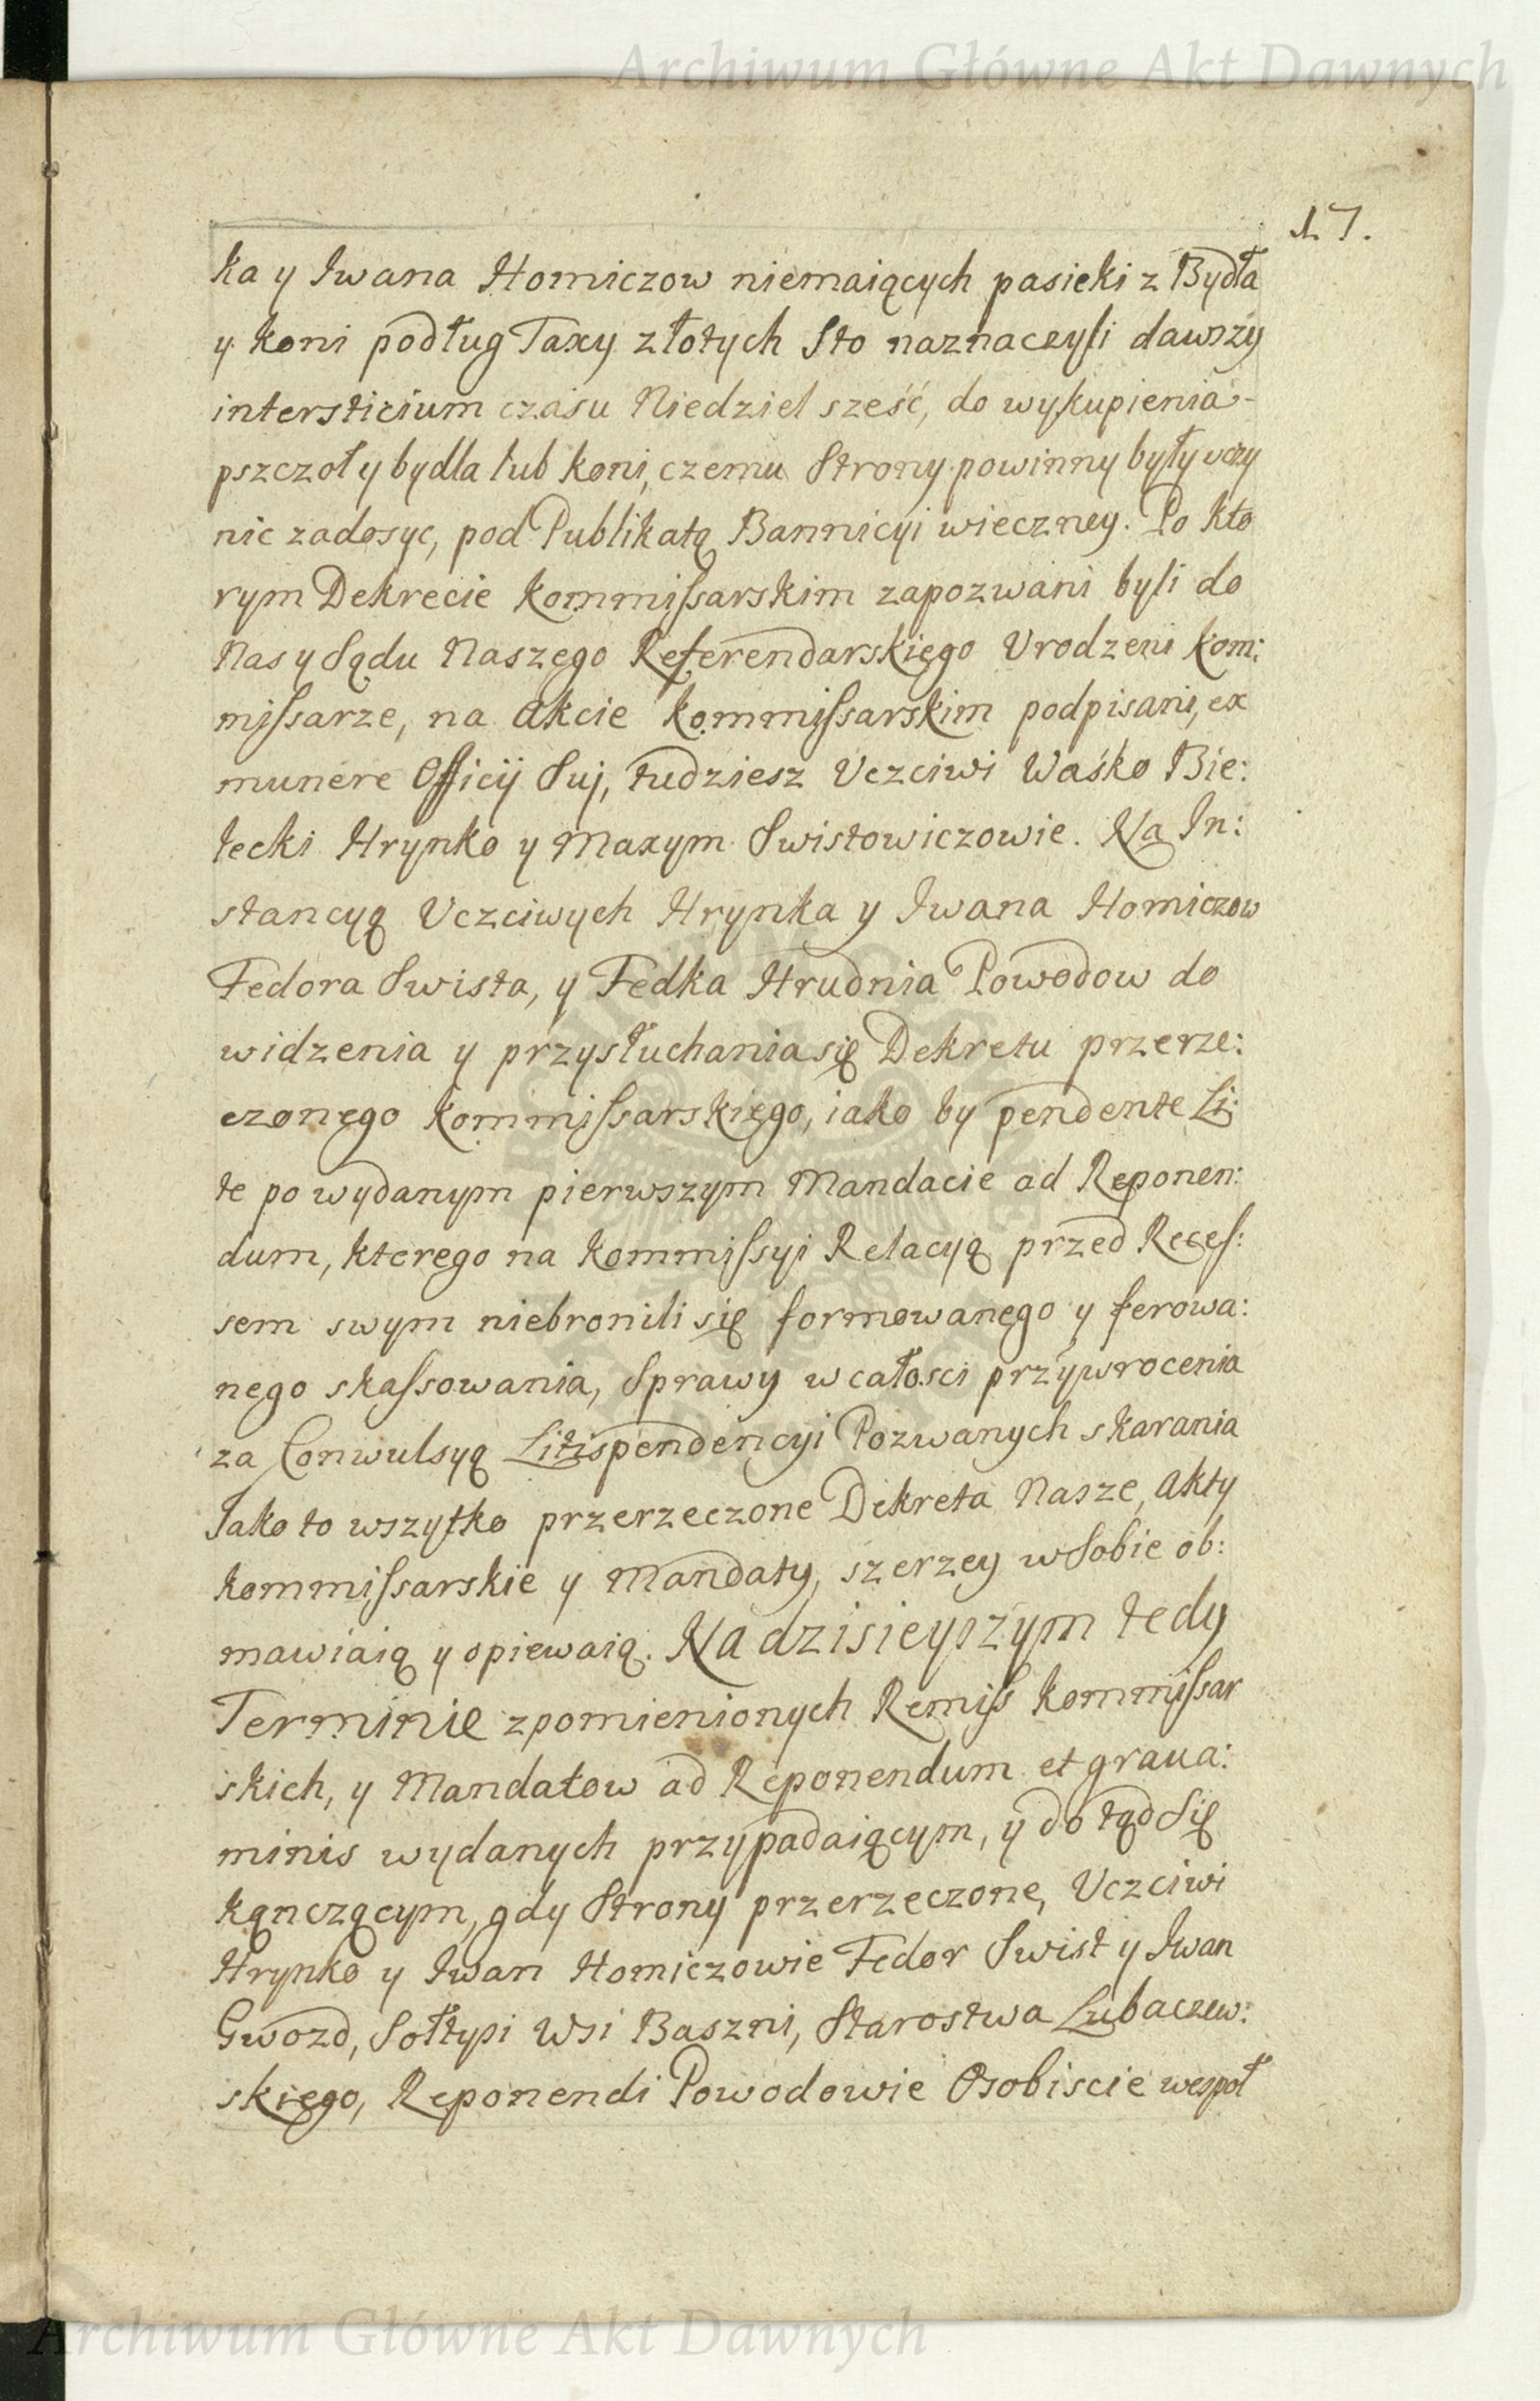 Archiwum Główne Akt Dawnych
17.
ka y Iwana Homiczow niemaiących pasieki z Bydła
y koni podług Taxy złotych Sto naznaczyli dawszy
intersticium czasu Niedziel sześć, do wykupienia
pszczoł y bydla lub koni, czemu Strony powinny były uczy
nic zadosyc, pod Publikatą Bannicyi wieczney. Po kto
rym Dekrecie kommissarskim zapozwani byli do
Nas y Sądu Naszego Referendarskiego Urodzeni kom:
missarze, na Akcie kommissarskim podpisani, ex
munere Officij Suj, tudziesz Uczciwi Waśko Bie:
lecki Hrynko y Maxym Swistowiczowie. Na In:
stancyą Uczciwych Hrynka y Iwana Homiczow
Fedora Swista, y Fedka Hrudnia Powodow do
widzenia y przysłuchania się Dekretu przerze:
czonego kommissarskiego, iako by pendente Li:
te po wydanym pierwszym Mandacie ad Reponen:
dum, ktorego na kommissyi Relacyą przed Reces:
sem swym niebronili się formowanego y ferowa:
nego skassowania, Sprawy w całosci przywrocenia
za Conwulsyą Litispendencyi Pozwanych skarania
Iako to wszytko przerzeczone Dekreta Nasze, Akty
kommissarskie y Mandaty, szerzey w Sobie ob:
mawiaią y opiewaią. Na dzisieyszym tedy
Terminie z pomienionych Remiss kommissar
skich, y Mandatow ad Reponendum et graua:
minis wydanych przypadaiącym, y do tąd Się
kąnczącym, gdy Strony przerzeczone, Uczciwi
Hrynko y Iwan Homiczowie Fedor Swist y Iwan
Gwozd, Sołtysi Wsi Baszni, Starostwa Lubaczew:
skiego, Reponendi Powodowie Osobiscie wespoł
Archiwum Główne Akt Dawnych